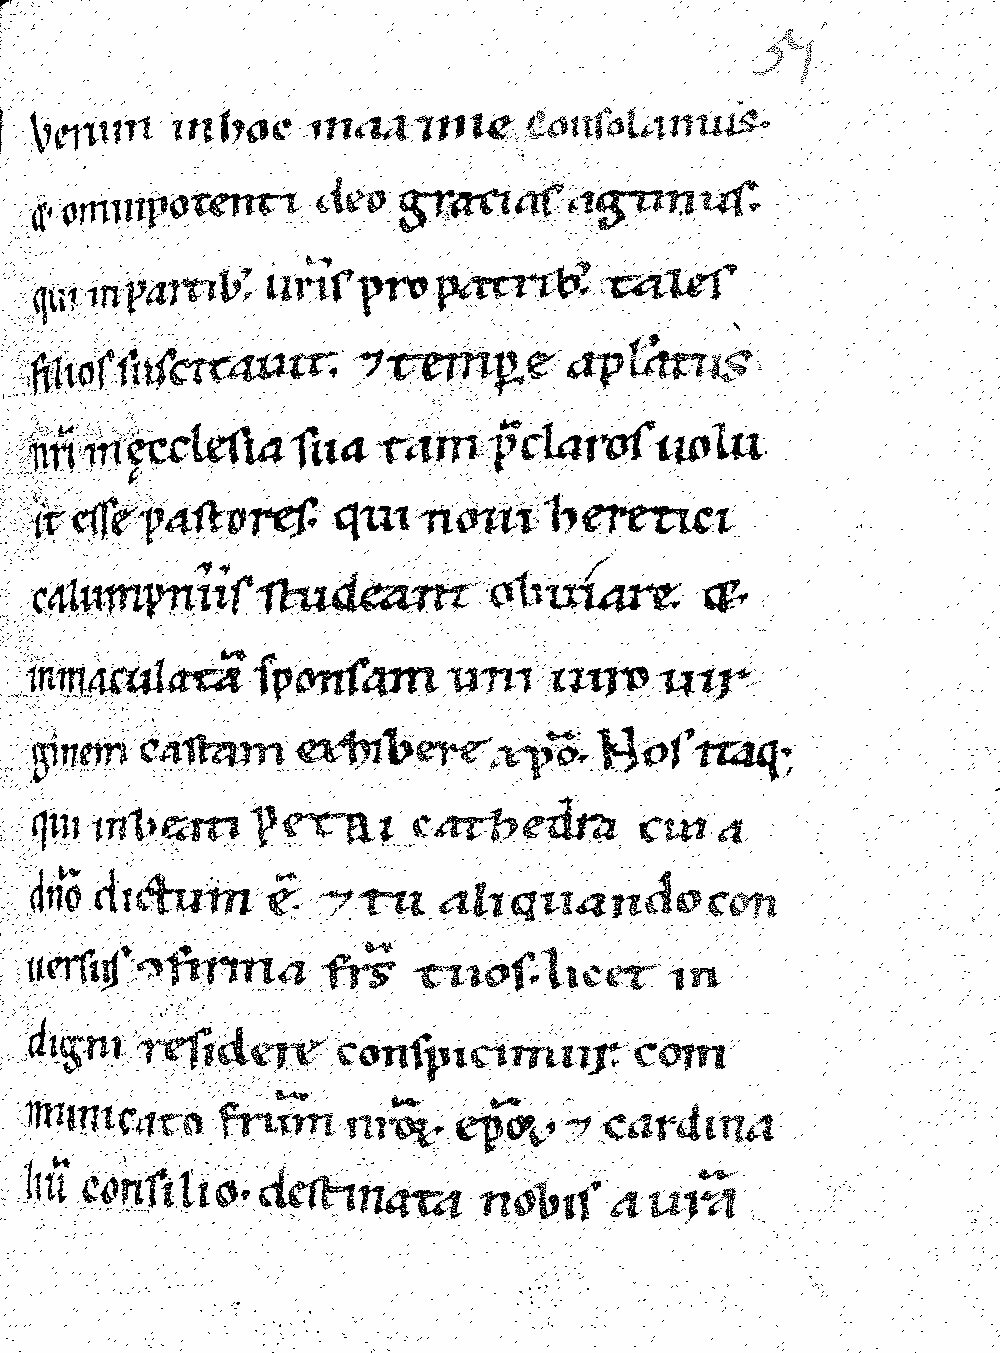 57
Verum in hoc maxime consolamur.
& omnipotenti deo gracias agimus.
qui in partib; ur̄is pro patrib; tales
filios suscitauit. ⁊ tempore apl̄atus
nr̄i in ęcclesia sua tam p̄claros uolu
it esse pastores. qui noui heretici
calumpniis studeant obuiare. &
inmaculatā sponsam uni uiro uir
ginem castam exhibere xp̄o. Nos itaq;
qui in beati PETRI cathedra cui a
dn̄o dictum ē. ⁊ tu aliquando con
uersus ꝯfirma fr̄s tuos. licet in
digni residere conspicimur. com
municato fr̄um nr̄oꝝ. ep̄oꝝ. ⁊ cardina
liū consilio. destinata nobis a ur̄a